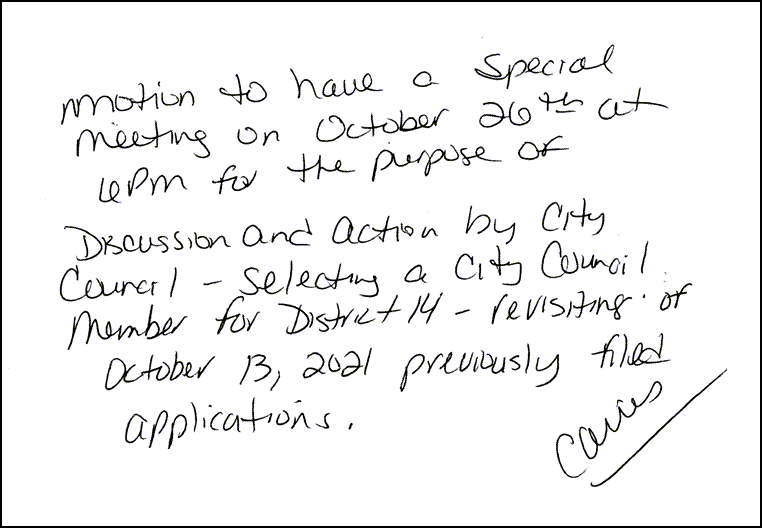 motion to have a special
meeting on October 26th at
6pm for the purpose of
Discussion and Action by City
Council - Selecting a City Council
Member for District 14 - revisiting of
October 13, 2021 previously filed
applications.
Carries